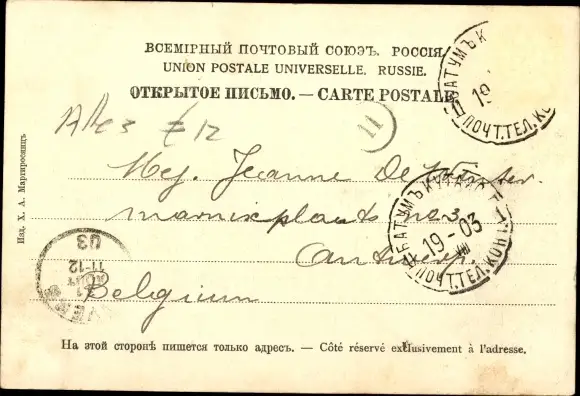 ВСЕМІРНЫЙ ПОЧТОВЫЙ СОЮЗЪ. РОССІЯ.
UNION POSTALE UNIVERSELLE. RUSSIE.
ОТКРЫТОЕ ПИСЬМО. — CARTE POSTALE
БАТУМЪ
19
ПОЧТ.ТЕЛ.КО
11
Mej. Jeanne De Winter.
marnixplaats no 3
Antwerp.
Belgium
БАТУМЪ
19 - 03
VIII
ПОЧТ.ТЕЛ.КОНТ
11-12
03
Изд. Х. А. Мартиросянцъ
На этой сторонѣ пишется только адресъ. — Côté réservé exclusivement à l'adresse.